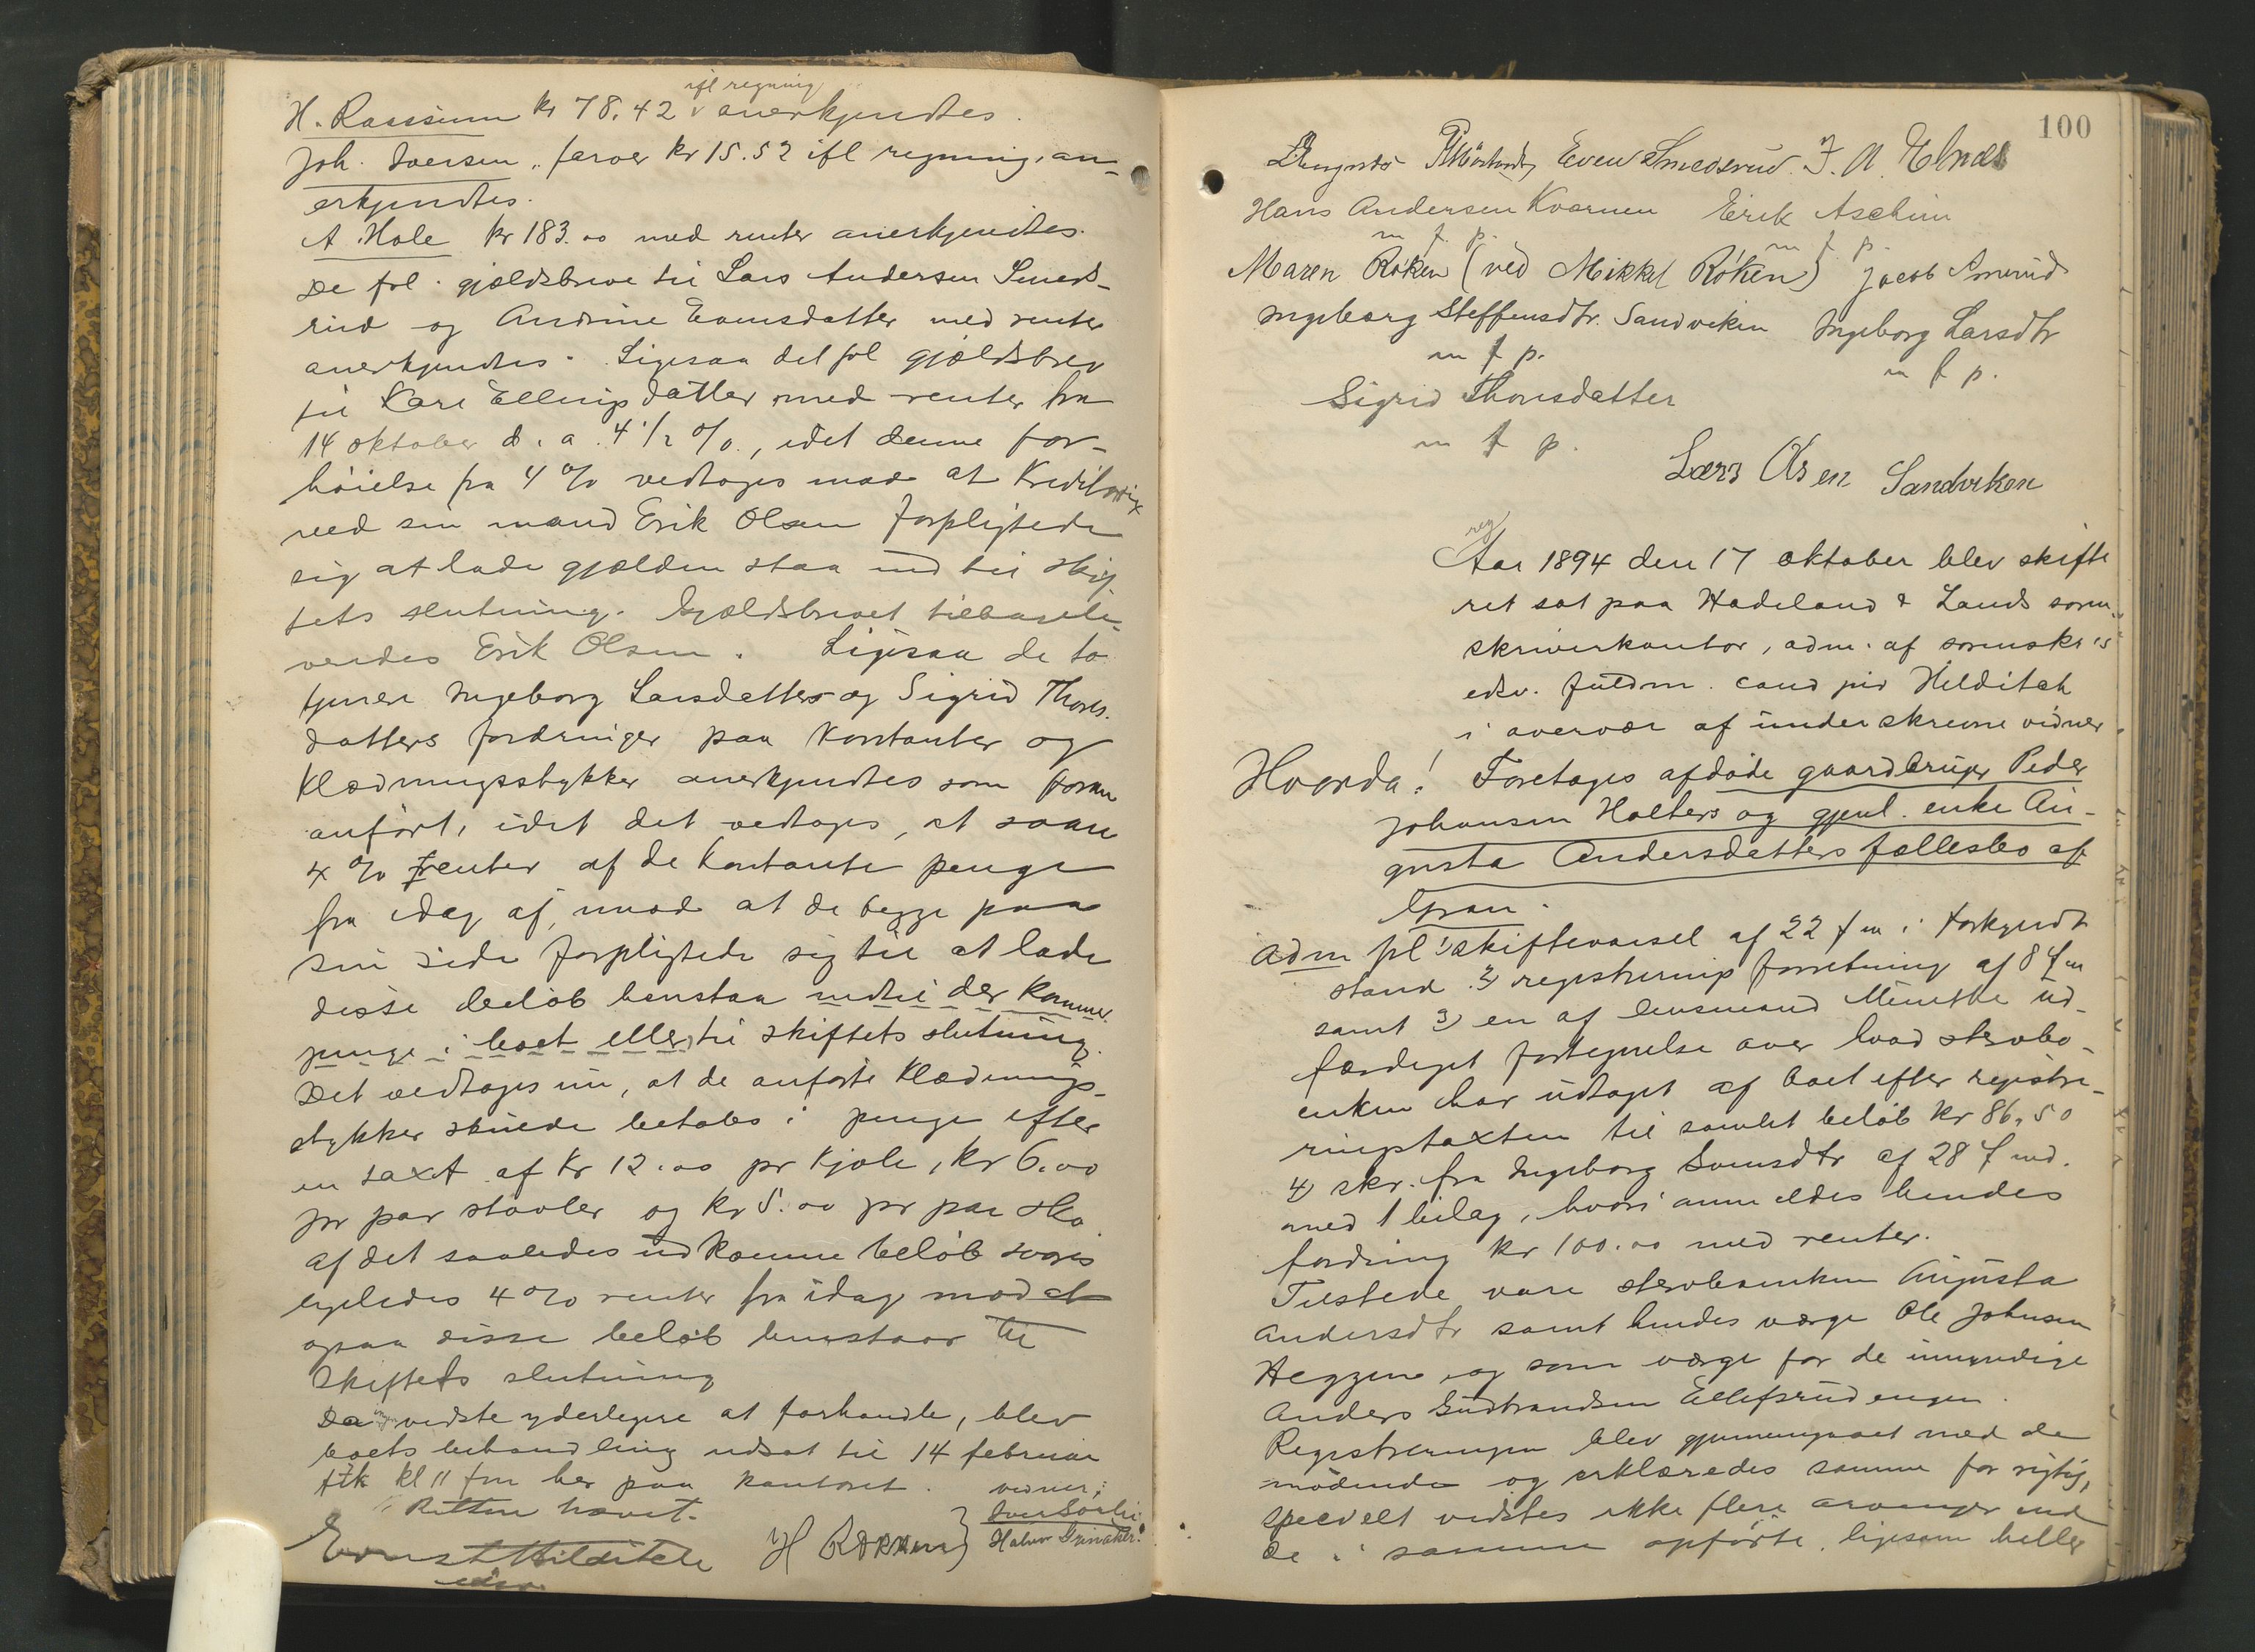 ifl regning
H. Rassum kr 78.42 v anerkjendtes.
Joh. Iversen, farver kr 15.52 ifl regning, an-
erkjendtes.
A. Hole kr 183.00 med renter anerkjendtes.
De frl. gjældsbreve til Lars Andersen Smeds-
rud og Andrine Evensdatter med renter
anerkjendtes. Ligesaa det frl gjældsbrev
til Kari Ellingsdatter med renter fra
14 oktober d. a. 4 1/2 %, idet denne for-
höielse fra 4 % vedtoges mod at Kreditorix
ved sin mand Erik Olsen forpligtede
sig at lade gjælden staa ind til skif
tets slutning. Gjældsbrevet tilbagele-
veredes Erik Olsen. Ligesaa de to
tjenere Ingeborg Larsdatters og Sigrid Thores-
datters fordringer paa Kontanter og
Klædningsstykker anerkjendtes som foran
anfört, idet det vedtoges, at svare
4 % renter af de kontante penge
fra idag af, mod at de begge paa
sin side forpligtede sig til at lade
disse beløb henstaa indtil der kommer
penge i boet eller til skiftets slutning.
Det vedtoges nu, at de anførte Klædnings-
stykker skulde betales i penge efter
en taxt af Kr 12.00 pr Kjole, Kr 6.00
pr par støvler og Kr 5.00 pr par sko
af det saaledes udkomne beløb svares
ligeledes 4 % renter fra idag mod at
ogsaa disse beløb henstaar til
Skiftets slutning
Da ingen vidste yderligere at forhandle, blev
boets behandling udsat til 14 februar
ftk kl 11 fm her paa kontoret. vidner:
Retten hævet. Iver Sorlie
Ernst Hilditch H Røkken Halvor Grinaker.
edsv.
100
Even Smedsrud. J. A. Elnæs
Hans Andersen Kvarnen Erik Aschim
m f. p. m f p.
Maren Röken (ved Mikkel Röken) Jacob Amrud
Ingeborg Steffensdtr. Sandviken Ingeborg Larsdtr
m f p. m f p.
Sigrid Thoresdatter
m f p.
Lars Olsen Sandviken
reg
Aar 1894 den 17 oktober blev skifte
ret sat paa Hadeland & Lands soren-
skriverkontor, adm. af sorenskr's
edsv. fuldm. cand jur Hilditch
i overvær af underskrevne vidner.
Hvorda! Foretoges afdøde gaardbruger Peder
Johansen Holters og gjenl. enke Au-
gusta Andersdatters fællesbo af
Gran.
Adm frl 1) skiftevarsel af 22 f m i forkyndt
stand 2) registrerings forretning af 8 f m
samt 3) en af lensmand Minithe ud-
færdiget fortegnelse over hvad stervbo-
enken har udtaget af boet efter registre-
ringstaxten til samlet beløb kr 86.50
4) skr. fra Ingeborg Svensdtr af 28 f md.
med 1 bilag, hvori anmeldes hendes
fordring kr 100.00 med renter.
Tilstede vare stervboenken Augusta
Andersdtr samt hendes værge Ole Johnsen
Heggen og som værge for de umyndige
Anders Gudbrandsen Ellefsrudengen.
Registreringen blev gjennemgaaet med de
mødende og erklæredes samme for rigtig,
specielt vidstes ikke flere arvinger end
de i samme opførte, ligesom heller